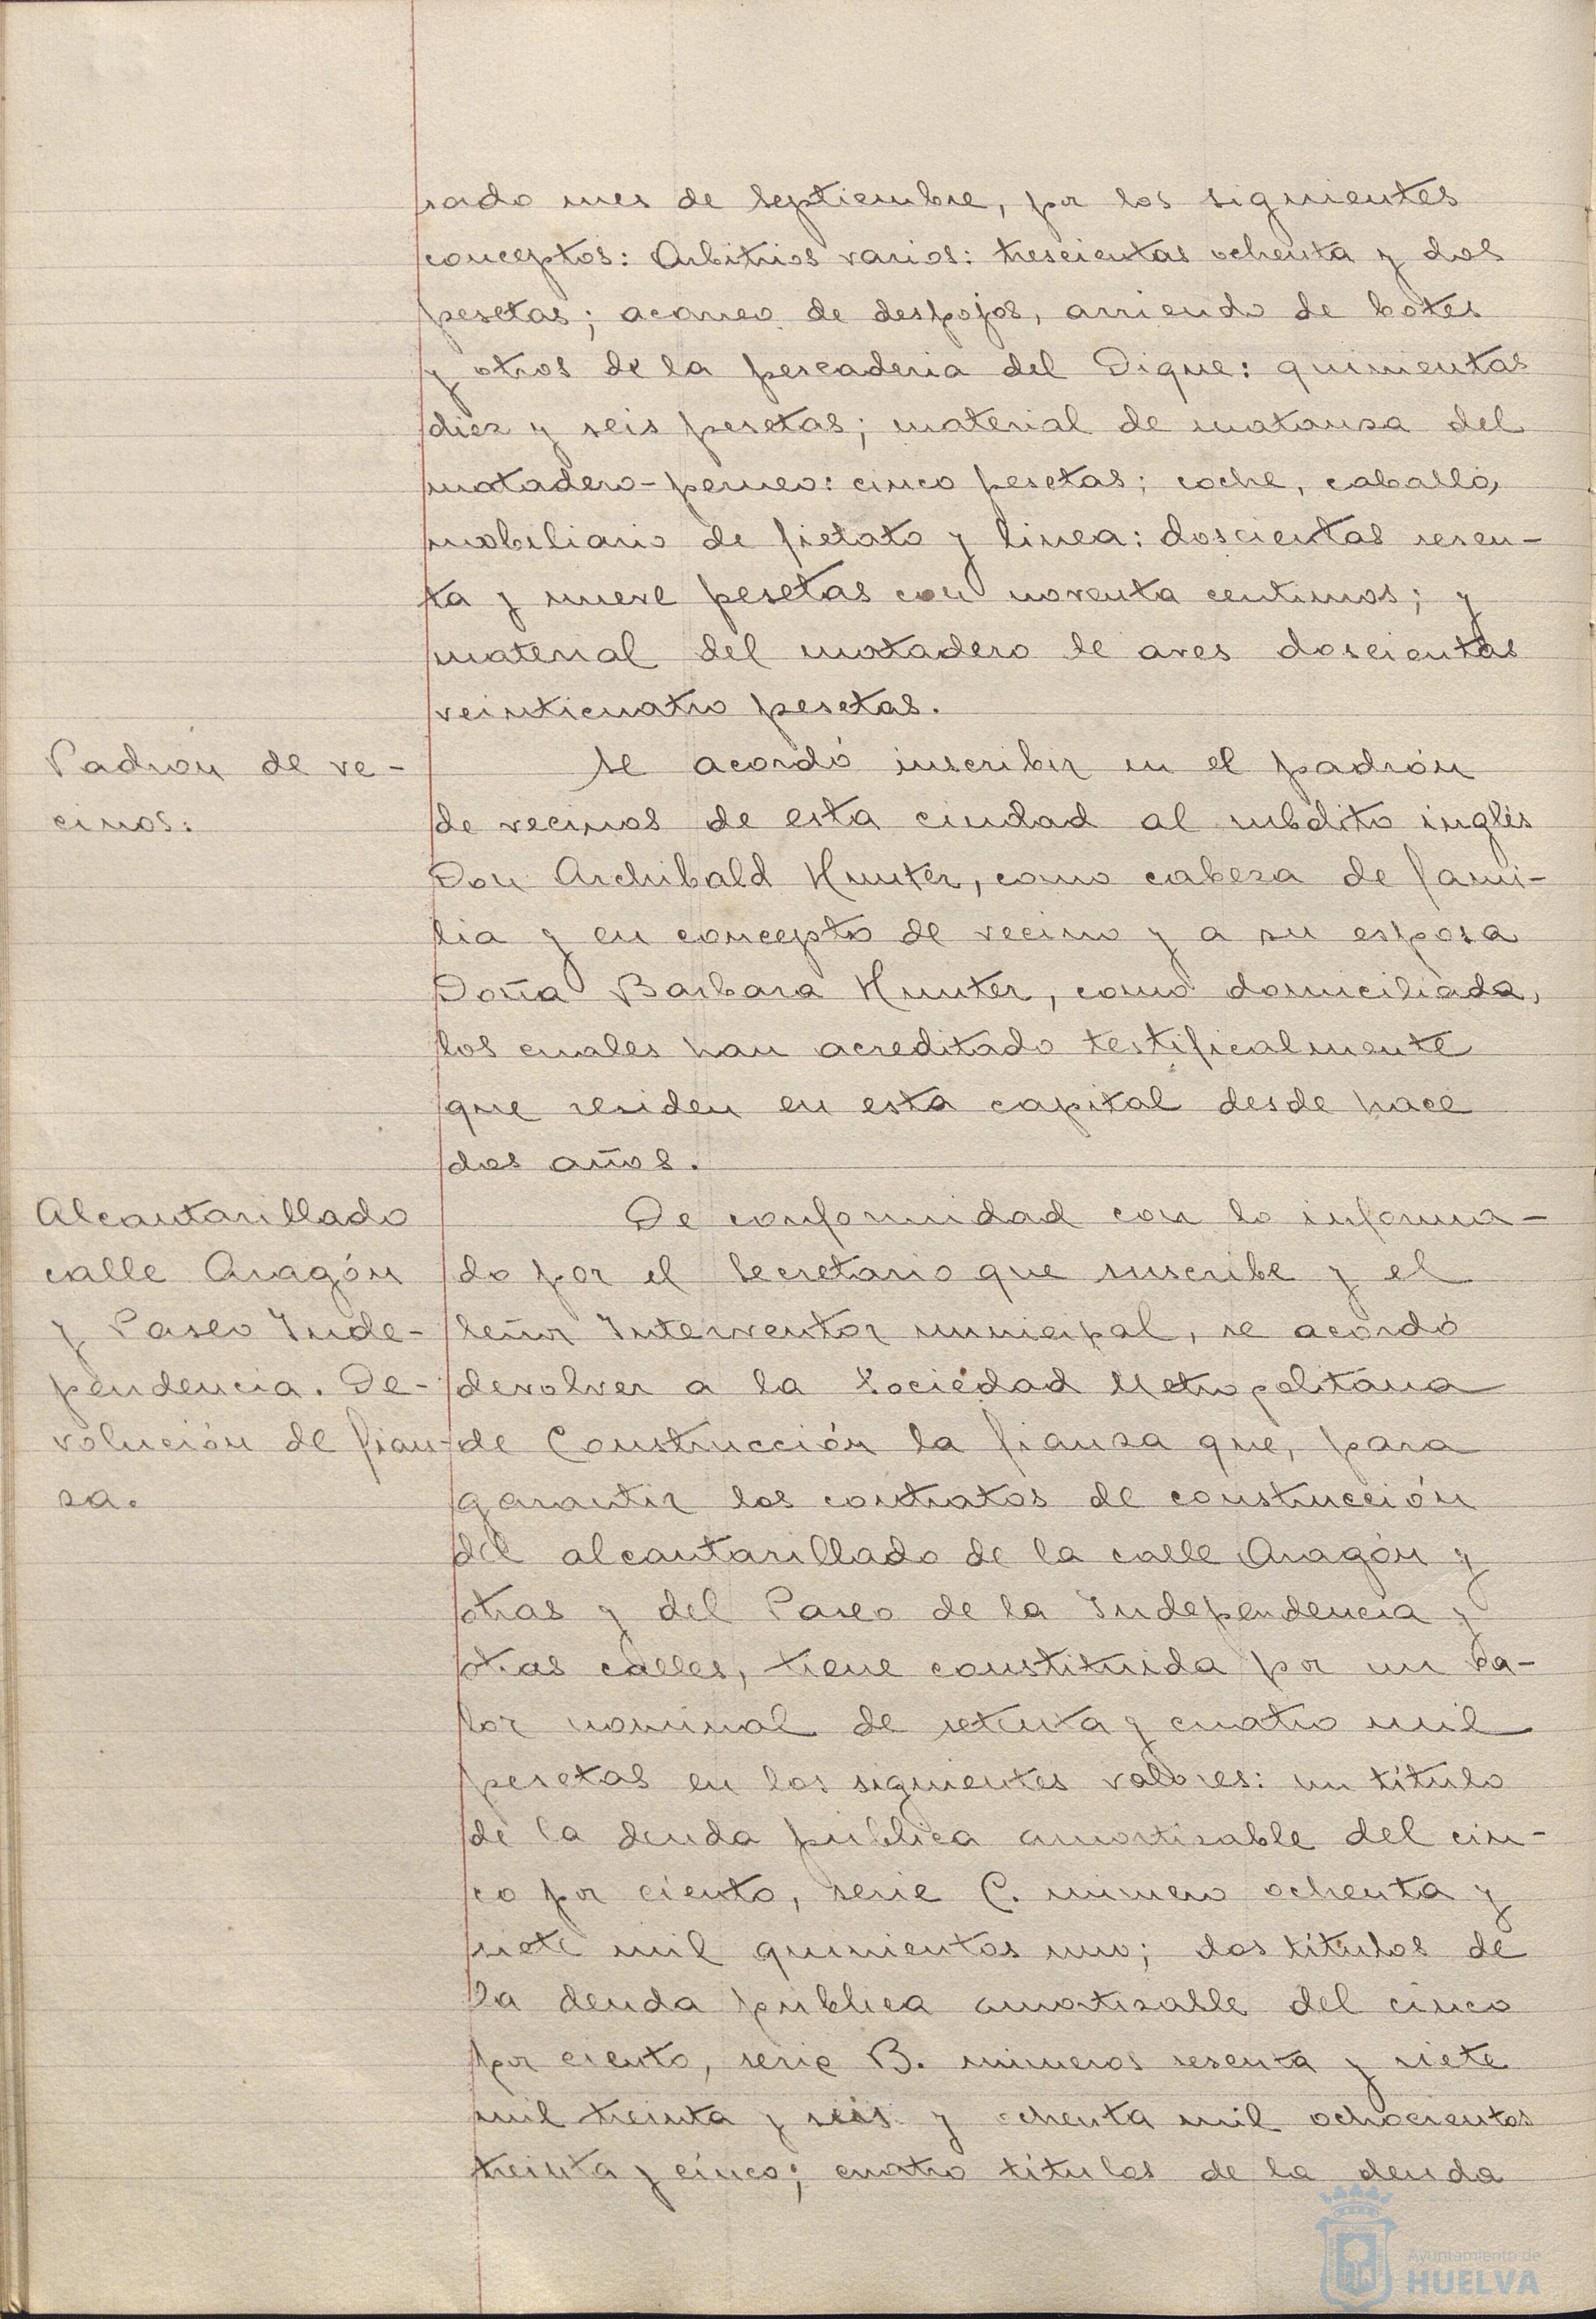 sado mes de Septiembre, por los siguientes
conceptos: Arbitrios varios: trescientas ochenta y dos
pesetas; acarreo de despojos, arriendo de botes
y otros de la pescaderia del Dique: quinientas
diez y seis pesetas; material de matanza del
matadero-perneo: cinco pesetas; coche, caballo,
mobiliario de fielato y linea: doscientas sesen-
ta y nueve pesetas con noventa centimos; y
material del matadero de aves doscientas
veinticuatro pesetas.
Padrón de ve-
cinos:
Se acordó inscribir en el padrón
de vecinos de esta ciudad al subdito inglés
Don Archibald Hunter, como cabeza de fami-
lia y en concepto de vecino y a su esposa
Doña Barbara Hunter, como domiciliada,
los cuales han acreditado testificalmente
que residen en esta capital desde hace
dos años.
Alcantarillado
calle Aragón
y Paseo Inde-
pendencia. De-
volución de fian-
za.
De conformidad con lo informa-
do por el Secretario que suscribe y el
Señor Interventor municipal, se acordó
devolver a la Sociedad Metropolitana
de Construcción la fianza que, para
garantir los contratos de construcción
del alcantarillado de la calle Aragón y
otras y del Paseo de la Independencia y
otras calles, tiene constituida por un va-
lor nominal de setenta y cuatro mil
pesetas en los siguientes valores: un título
de la deuda publica amortizable del cin-
co por ciento, serie C. numero ochenta y
siete mil quinientos uno; dos títulos de
la deuda publica amortizable del cinco
por ciento, serie B. numeros sesenta y siete
mil treinta y seis y ochenta mil ochocientos
treinta y cinco; cuatro títulos de la deuda
Ayuntamiento de
HUELVA